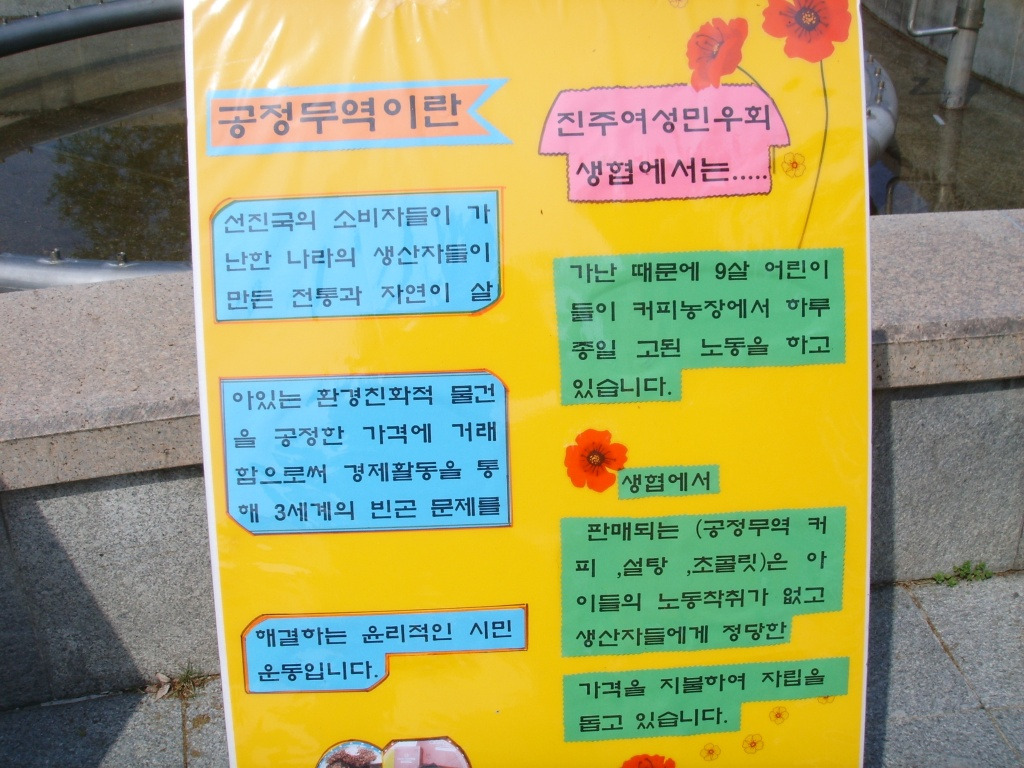 공정무역이란
선진국의 소비자들이 가
난한 나라의 생산자들이
만든 전통과 자연이 살
아있는 환경친화적 물건
을 공정한 가격에 거래
함으로써 경제활동을 통
해 3세계의 빈곤 문제를
해결하는 윤리적인 시민
운동입니다.
진주여성민우회
생협에서는.....
가난 때문에 9살 어린이
들이 커피농장에서 하루
종일 고된 노동을 하고
있습니다.
생협에서
판매되는 (공정무역 커
피 ,설탕 ,초콜릿)은 아
이들의 노동착취가 없고
생산자들에게 정당한
가격을 지불하여 자립을
돕고 있습니다.